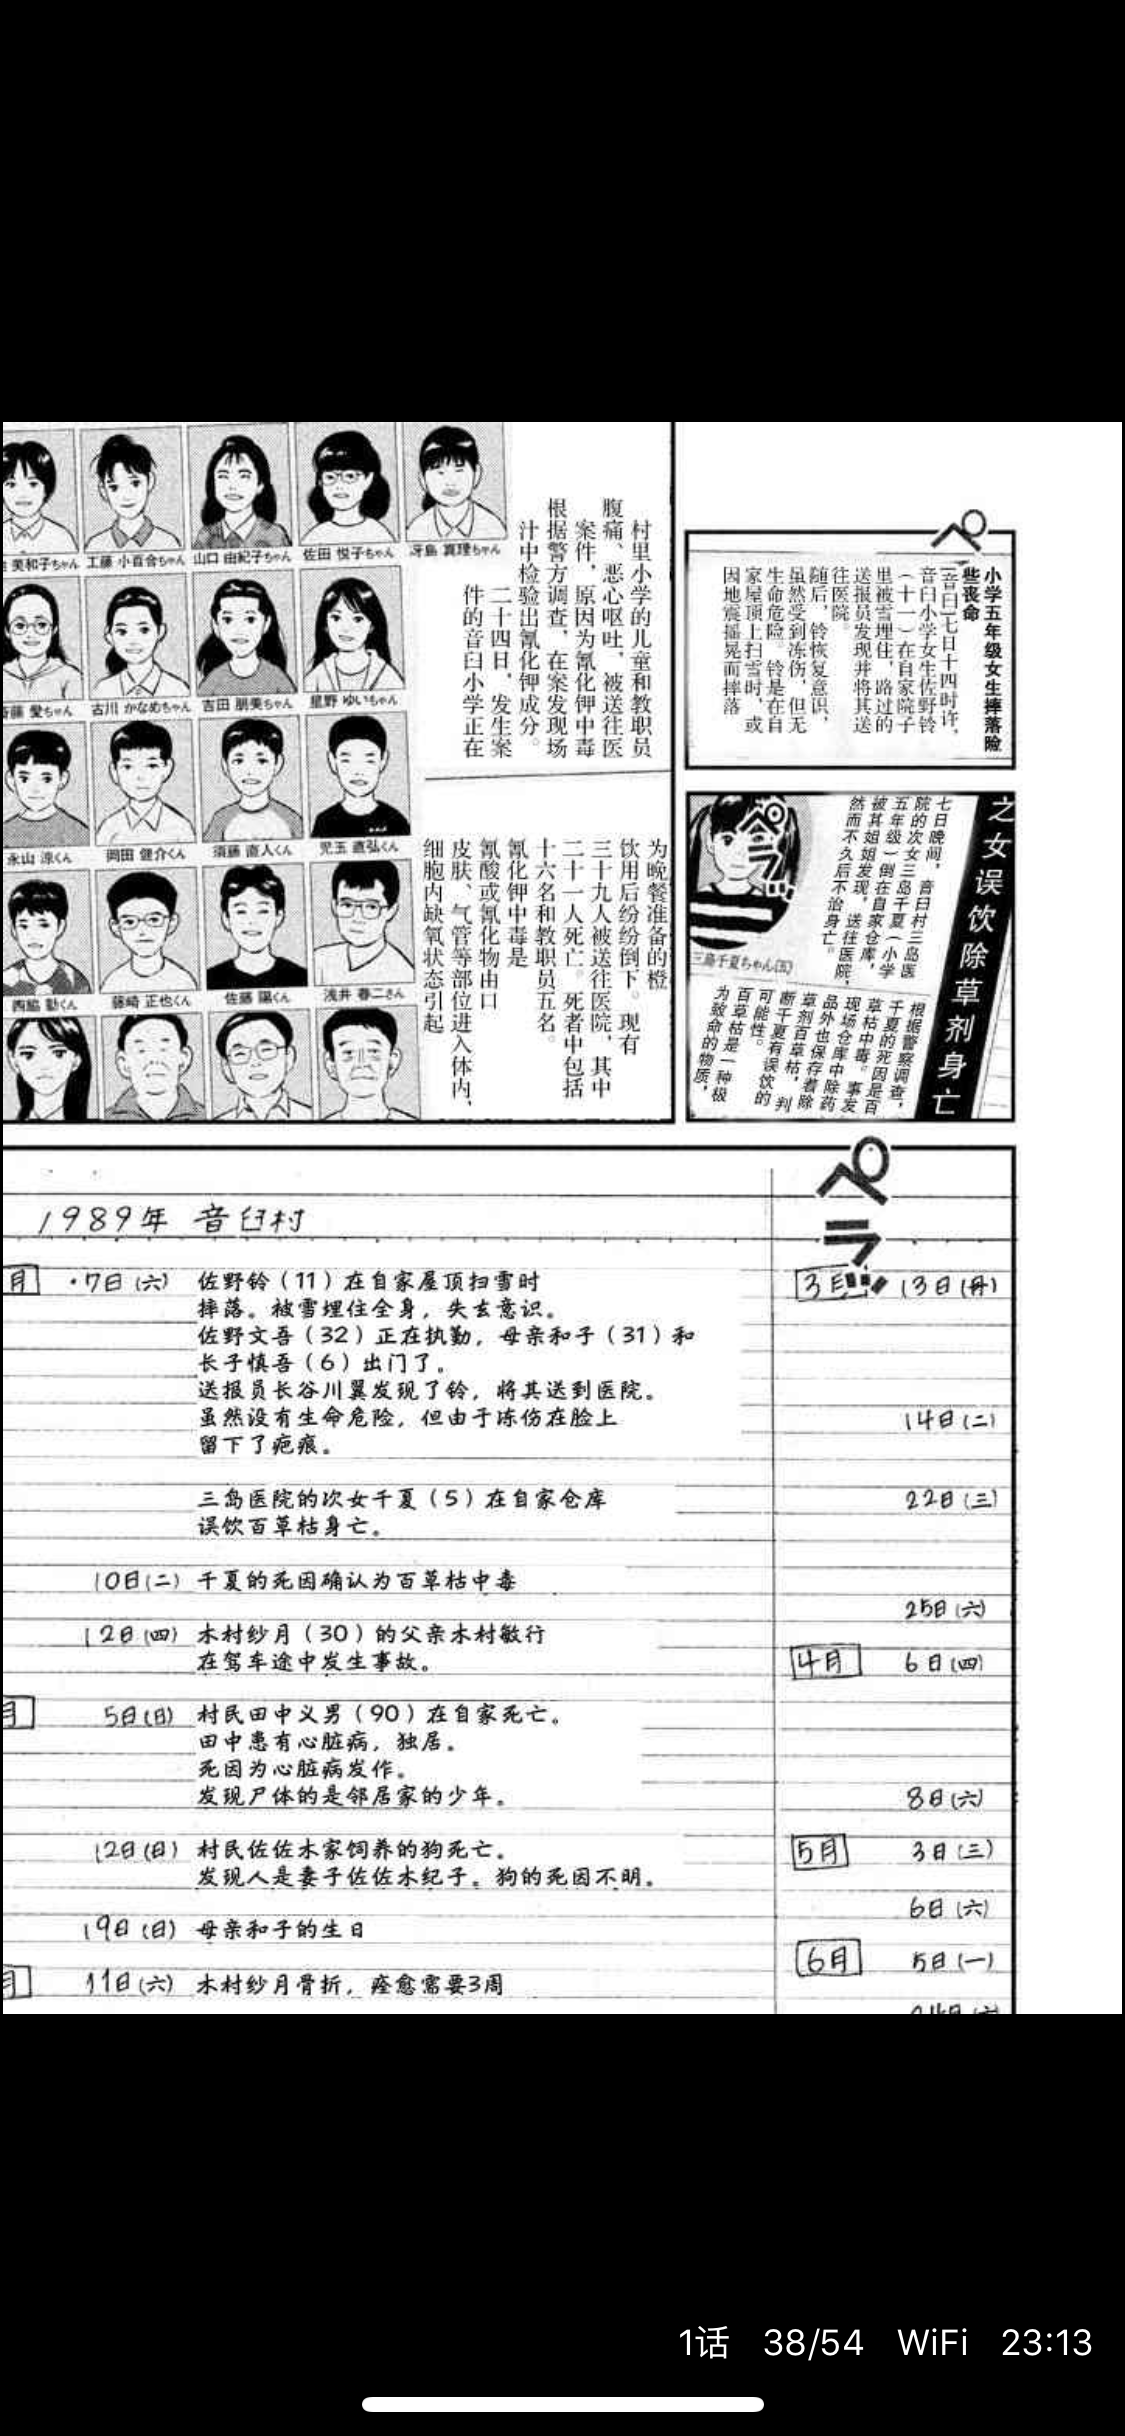 小学五年级女生摔落险
些丧命
【音臼】七日十四时许，
音臼小学女生佐野铃
（十一）在自家院子
里被雪埋住，路过的
送报员发现并将其送
往医院。
随后，铃恢复意识，
虽然受到冻伤，但无
生命危险。铃是在自
家屋顶上扫雪时，或
因地震摇晃而摔落
ペ
之女误饮除草剂身亡
七日晚间，音臼村三岛医
院的次女三岛千夏（小学
五年级）倒在自家仓库，
被其姐姐发现，送往医院，
然而不久后不治身亡。
ペラ
三島千夏ちゃん(五)
根据警察调查，
千夏的死因是百
草枯中毒。事发
现场仓库中除药
品外也保存着除
草剂百草枯，判
断千夏有误饮的
可能性。
百草枯是一种极
为致命的物质，
村里小学的儿童和教职员
腹痛、恶心呕吐，被送往医
案件，原因为氰化钾中毒
根据警方调查，在案发现场
汁中检验出氰化钾成分。
二十四日，发生案
件的音臼小学正在
为晚餐准备的橙
饮用后纷纷倒下。现有
三十九人被送往医院，其中
二十一人死亡。死者中包括
十六名和教职员五名。
氰化钾中毒是
氰酸或氰化物由口
皮肤、气管等部位进入体内，
细胞内缺氧状态引起
美和子ちゃん 工藤 小百合ちゃん 山口 由紀子ちゃん 佐田 悦子ちゃん 冴島 真理ちゃん
斎藤 愛ちゃん 古川 かなめちゃん 吉田 朋美ちゃん 星野 ゆいちゃん
永山 涼くん 岡田 健介くん 須藤 直人くん 児玉 直弘くん
西脇 勤くん 藤崎 正也くん 佐藤 陽くん 浅井 春二さん
ペラ
1989年 音臼村
月 ・7日(六) 佐野铃（11）在自家屋顶扫雪时
摔落。被雪埋住全身，失去意识。
佐野文吾（32）正在执勤，母亲和子（31）和
长子慎吾（6）出门了。
送报员长谷川翼发现了铃，将其送到医院。
虽然没有生命危险，但由于冻伤在脸上
留下了疤痕。
三岛医院的次女千夏（5）在自家仓库
误饮百草枯身亡。
10日(二) 千夏的死因确认为百草枯中毒
12日(四) 木村纱月（30）的父亲木村敏行
在驾车途中发生事故。
月 5日(日) 村民田中义男（90）在自家死亡。
田中患有心脏病，独居。
死因为心脏病发作。
发现尸体的是邻居家的少年。
12日(日) 村民佐佐木家饲养的狗死亡。
发现人是妻子佐佐木纪子。狗的死因不明。
19日(日) 母亲和子的生日
月 11日(六) 木村纱月骨折，痊愈需要3周
3 13日
14日(二)
22日(三)
25日(六)
4月 6日(四)
8日(六)
5月 3日(三)
6日(六)
6月 5日(一)
1话 38/54 WiFi 23:13